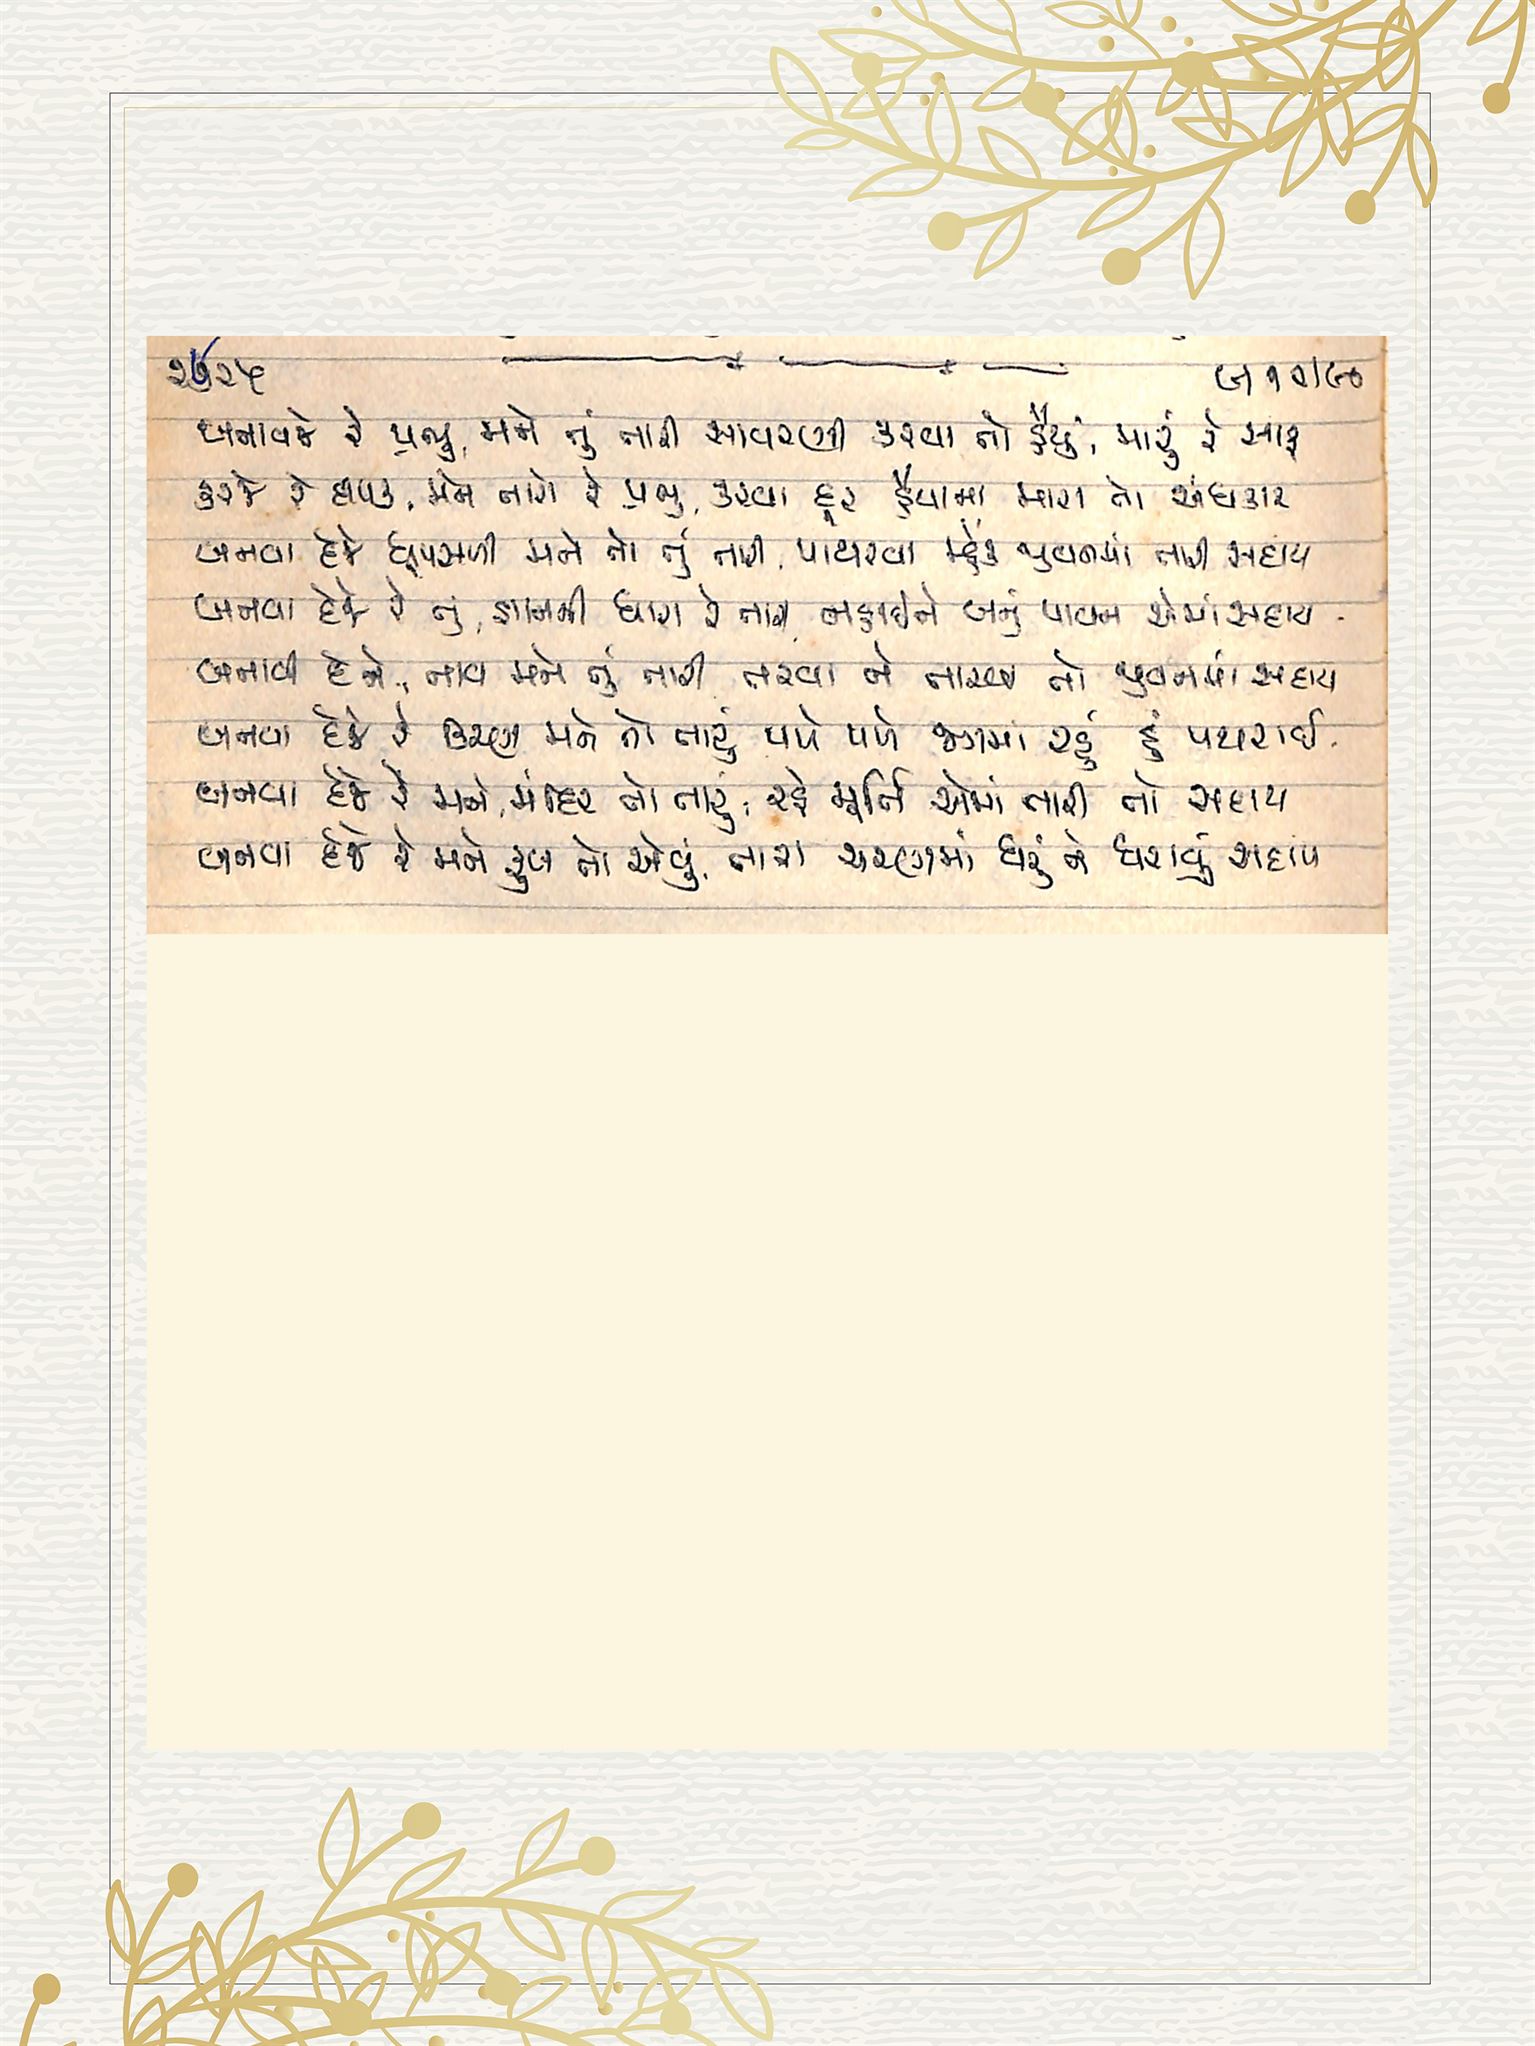 ૨૭૨૫
બનાવજે રે પ્રભુ, મને તું તારી સાવરણી કરવા તો હૈયું, મારું રે સાફ
કરજે રે દીપક, મને તારો રે પ્રભુ, કરવા દૂર હૈયાના મારા તો અંધકાર
બનવા દેજે ધૂપસળી મને તો તું તારી, પાથરવા મ્હેંક જીવનમાં તારી સદાય
બનવા દેજે રે તું, જ્ઞાનની ધારા રે તારી, બનું પાવન એમાં સદાય.
બનાવી દેજે, નાવ મને તું તારી તરવા ને તારવા તો જીવનમાં સદાય
બનવા દેજે રે મને તો તારું પળે પળે જગમાં રહું હું પથરાઈ.
બનવા દેજે રે મને, મંદિર તો તારું, રહે મૂર્તિ એમાં તારી તો સદાય
બનવા દેજે રે મને ફુલ તો એવું, તારા ચરણમાં ધરું ને ધરાવું સદાય